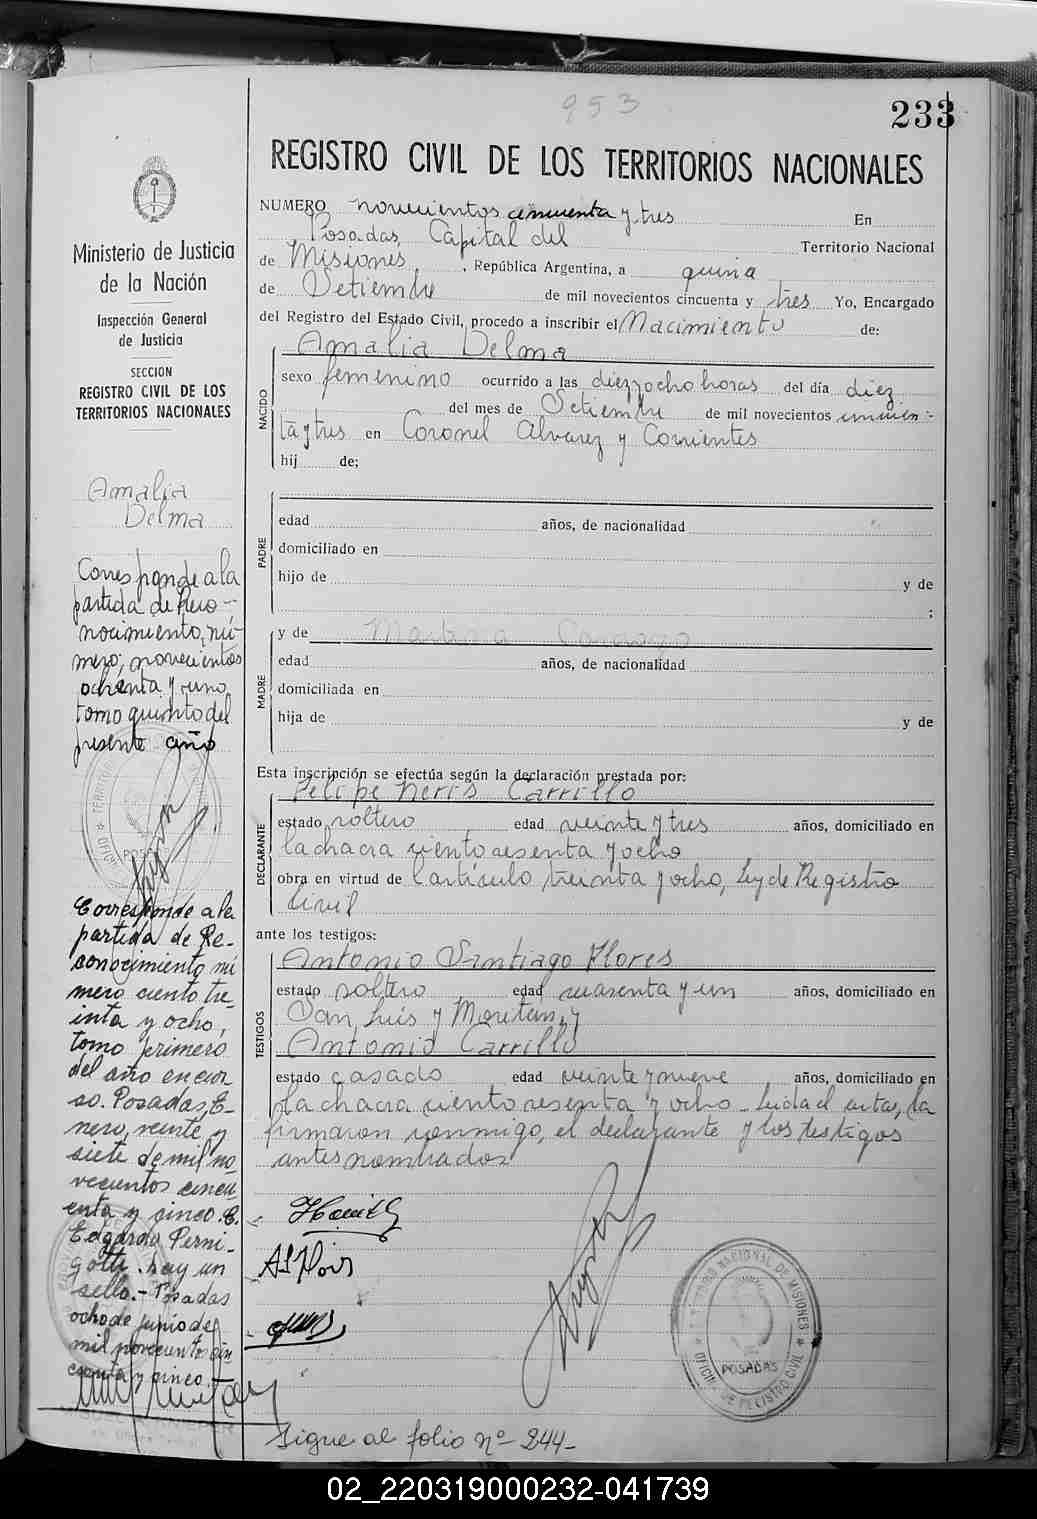 953
233
REGISTRO CIVIL DE LOS TERRITORIOS NACIONALES
NUMERO novecientos cincuenta y tres En
Posadas, Capital del Territorio Nacional
de Misiones, República Argentina, a quince
de Setiembre de mil novecientos cincuenta y tres Yo, Encargado
del Registro del Estado Civil, procedo a inscribir el Nacimiento de:
NACIDO
Amalia Delma
sexo femenino ocurrido a las diez y ocho horas del día diez
del mes de Setiembre de mil novecientos cincuen-
ta y tres en Coronel Alvarez y Corrientes
hij de;
PADRE
edad años, de nacionalidad
domiciliado en
hijo de y de
;
MADRE
y de
edad años, de nacionalidad
domiciliada en
hija de y de
Esta inscripción se efectúa según la declaración prestada por:
DECLARANTE
Felipe Neris Carrillo
estado soltero edad veinte y tres años, domiciliado en
la chacra ciento sesenta y ocho
obra en virtud de l artículo treinta y ocho, Ley de Registro
Civil
ante los testigos:
TESTIGOS
Antonio Santiago Flores
estado soltero edad cuarenta y un años, domiciliado en
San Luis y
Antonio Carrillo
estado casado edad veinte y nueve años, domiciliado en
la chacra ciento sesenta y ocho - Leida el acta, la
firmaron conmigo, el declarante y los testigos
antes nombrados
TERRITORIO NACIONAL DE MISIONES
POSADAS
OFICINA DE REGISTRO CIVIL
Sigue al folio nº 244-
Ministerio de Justicia
de la Nación
Inspección General
de Justicia
SECCION
REGISTRO CIVIL DE LOS
TERRITORIOS NACIONALES
Amalia
Delma
Corresponde a la
partida de Reco-
nocimiento, nú-
mero, novecientos
ochenta y uno,
tomo quinto del
presente año
Corresponde a la
partida de Re-
conocimiento nú
mero ciento tre-
inta y ocho,
tomo primero
del año en cur
so. Posadas, E-
nero, veinte y
siete de mil no-
vecientos cincu
enta y cinco. E.
Edgardo Perni-
gotti. hay un
sello.- Posadas
ocho de junio de
mil novecientos cin
cuenta y cinco.
02_220319000232-041739